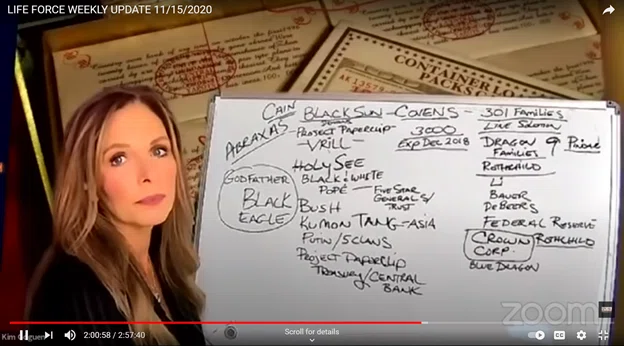 LIFE FORCE WEEKLY UPDATE 11/15/2020
CONTAINERLO
PACKS
CAIN
ABRAXAS
BLACK SUN - COVENS - 301 FAMILIES
PROJECT PAPERCLIP -
-VRILL-
3000
EXP DEC 2018
LINE SOLOMON
DRAGON 9
FAMILIES
ROTHCHILD
LI
BAUER
DEBEERS
FEDERAL RESERVE
CROWN CORP. ROTHCHILD
BLUE DRAGON
GODFATHER
BLACK
EAGLE
HOLY SEE
BLACK & WHITE
POPE - FIVE STAR
GENERALS/
TRUST
BUSH
KUMON TANG - ASIA
PUTIN/5 CLANS
PROJECT PAPERCLIP
TREASURY/CENTRAL
BANK
zoom
Kim Goguen
2:00:58 / 2:57:40
Scroll for details